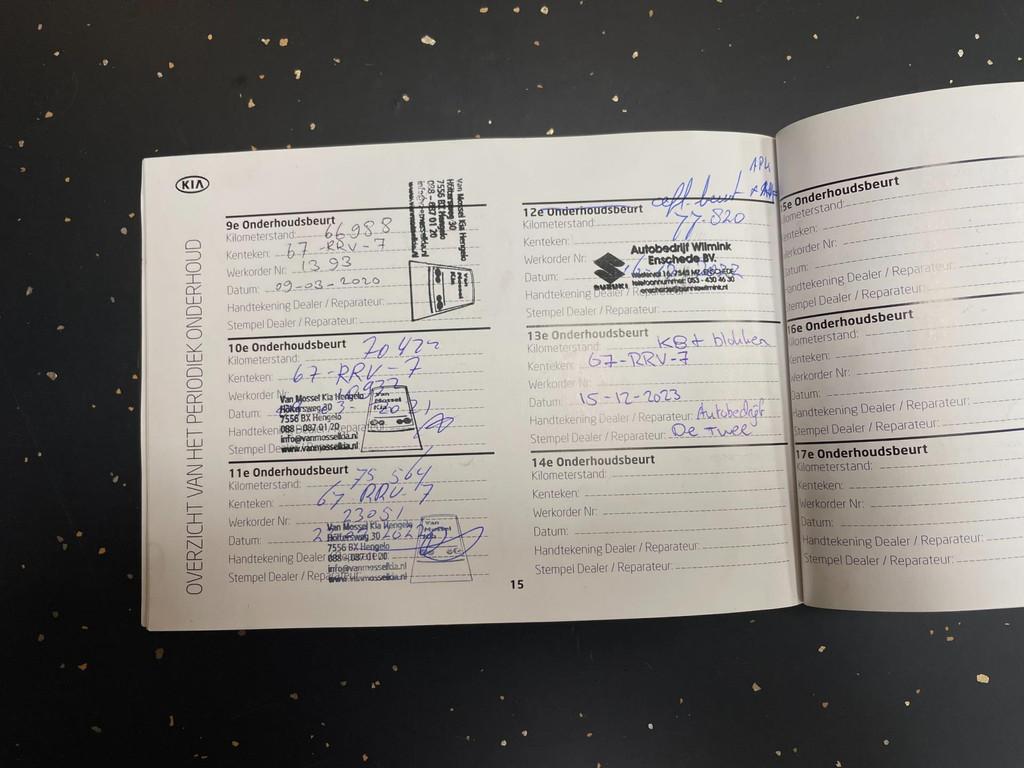 KIA
OVERZICHT VAN HET PERIODIEK ONDERHOUD
9e Onderhoudsbeurt
Kilometerstand: 66988
Kenteken: 67-RRV-7
Werkorder Nr: 1393
Datum: 09-03-2020
Handtekening Dealer / Reparateur:
Stempel Dealer / Reparateur:
Van Mossel Kia Hengelo
Höltersweg 30
7556 BX Hengelo
088 - 087 01 20
info@vanmosselkia.nl
www.vanmosselkia.nl
Van Mossel Kia
10e Onderhoudsbeurt
Kilometerstand: 70422
Kenteken: 67-RRV-7
Werkorder Nr:
Datum: 2021
Van Mossel Kia Hengelo
Höltersweg 30
7556 BX Hengelo
088 - 087 01 20
info@vanmosselkia.nl
www.vanmosselkia.nl
Van Mossel Kia
11e Onderhoudsbeurt
Kilometerstand: 75 564
Kenteken: 67 RRV 7
Werkorder Nr: 23051
Datum:
Handtekening Dealer
Stempel Dealer / Reparateur:
Van Mossel Kia Hengelo
Höltersweg 30
7556 BX Hengelo
088 - 087 01 20
info@vanmosselkia.nl
www.vanmosselkia.nl
Van Mossel
12e Onderhoudsbeurt beurt APK
Kilometerstand: 77.820
Kenteken:
Werkorder Nr:
Datum:
Handtekening Dealer / Reparateur:
Stempel Dealer / Reparateur:
Autobedrijf Wilmink
Enschede BV.
telefoonnummer: 053 - 430 46 30
SUZUKI
13e Onderhoudsbeurt
Kilometerstand: KB+ blokken
Kenteken: 67-RRV-7
Werkorder Nr:
Datum: 15-12-2023
Handtekening Dealer / Reparateur: Autobedrijf
Stempel Dealer / Reparateur: De Twee
14e Onderhoudsbeurt
Kilometerstand:
Kenteken:
Werkorder Nr:
Datum:
Handtekening Dealer / Reparateur:
Stempel Dealer / Reparateur:
15
5e Onderhoudsbeurt
Kilometerstand:
Kenteken:
Werkorder Nr:
Datum:
Handtekening Dealer / Reparateur:
Stempel Dealer / Reparateur:
16e Onderhoudsbeurt
Kilometerstand:
Kenteken:
Werkorder Nr:
Datum:
Handtekening Dealer / Reparateur:
Stempel Dealer / Reparateur:
17e Onderhoudsbeurt
Kilometerstand:
Kenteken:
Werkorder Nr:
Datum:
Handtekening Dealer / Reparateur:
Stempel Dealer / Reparateur: